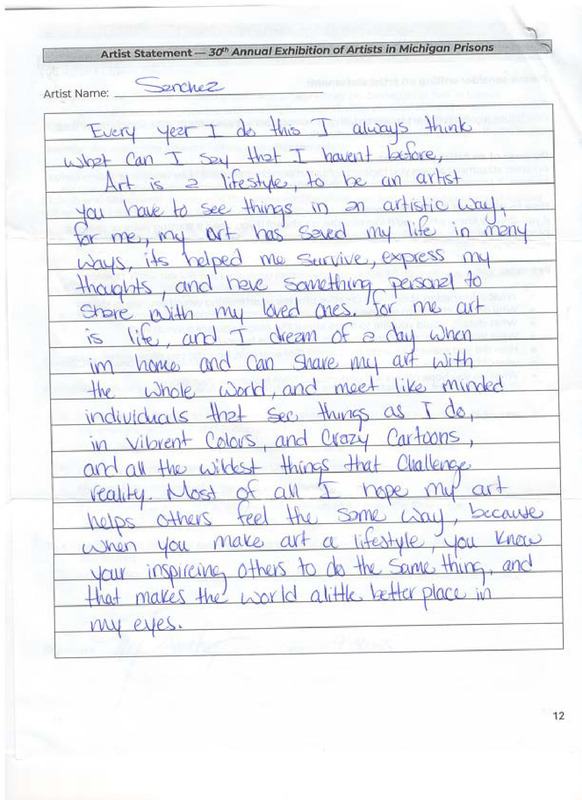 Artist Statement — 30th Annual Exhibition of Artists in Michigan Prisons
Artist Name: Sanchez
Every year I do this I always think
what can I say that I havent before,
Art is a lifestyle, to be an artist
you have to see things in an artistic way,
for me, my art has saved my life in many
ways, its helped me survive, express my
thoughts, and have something personal to
share with my loved ones. for me art
is life, and I dream of a day when
im home and can share my art with
the whole world, and meet like minded
individuals that see things as I do,
in vibrent colors, and crazy cartoons,
and all the wildest things that challenge
reality. Most of all I hope my art
helps others feel the same way, because
when you make art a lifestyle, you know
your inspireing others to do the same thing, and
that makes the world alittle better place in
my eyes.
12